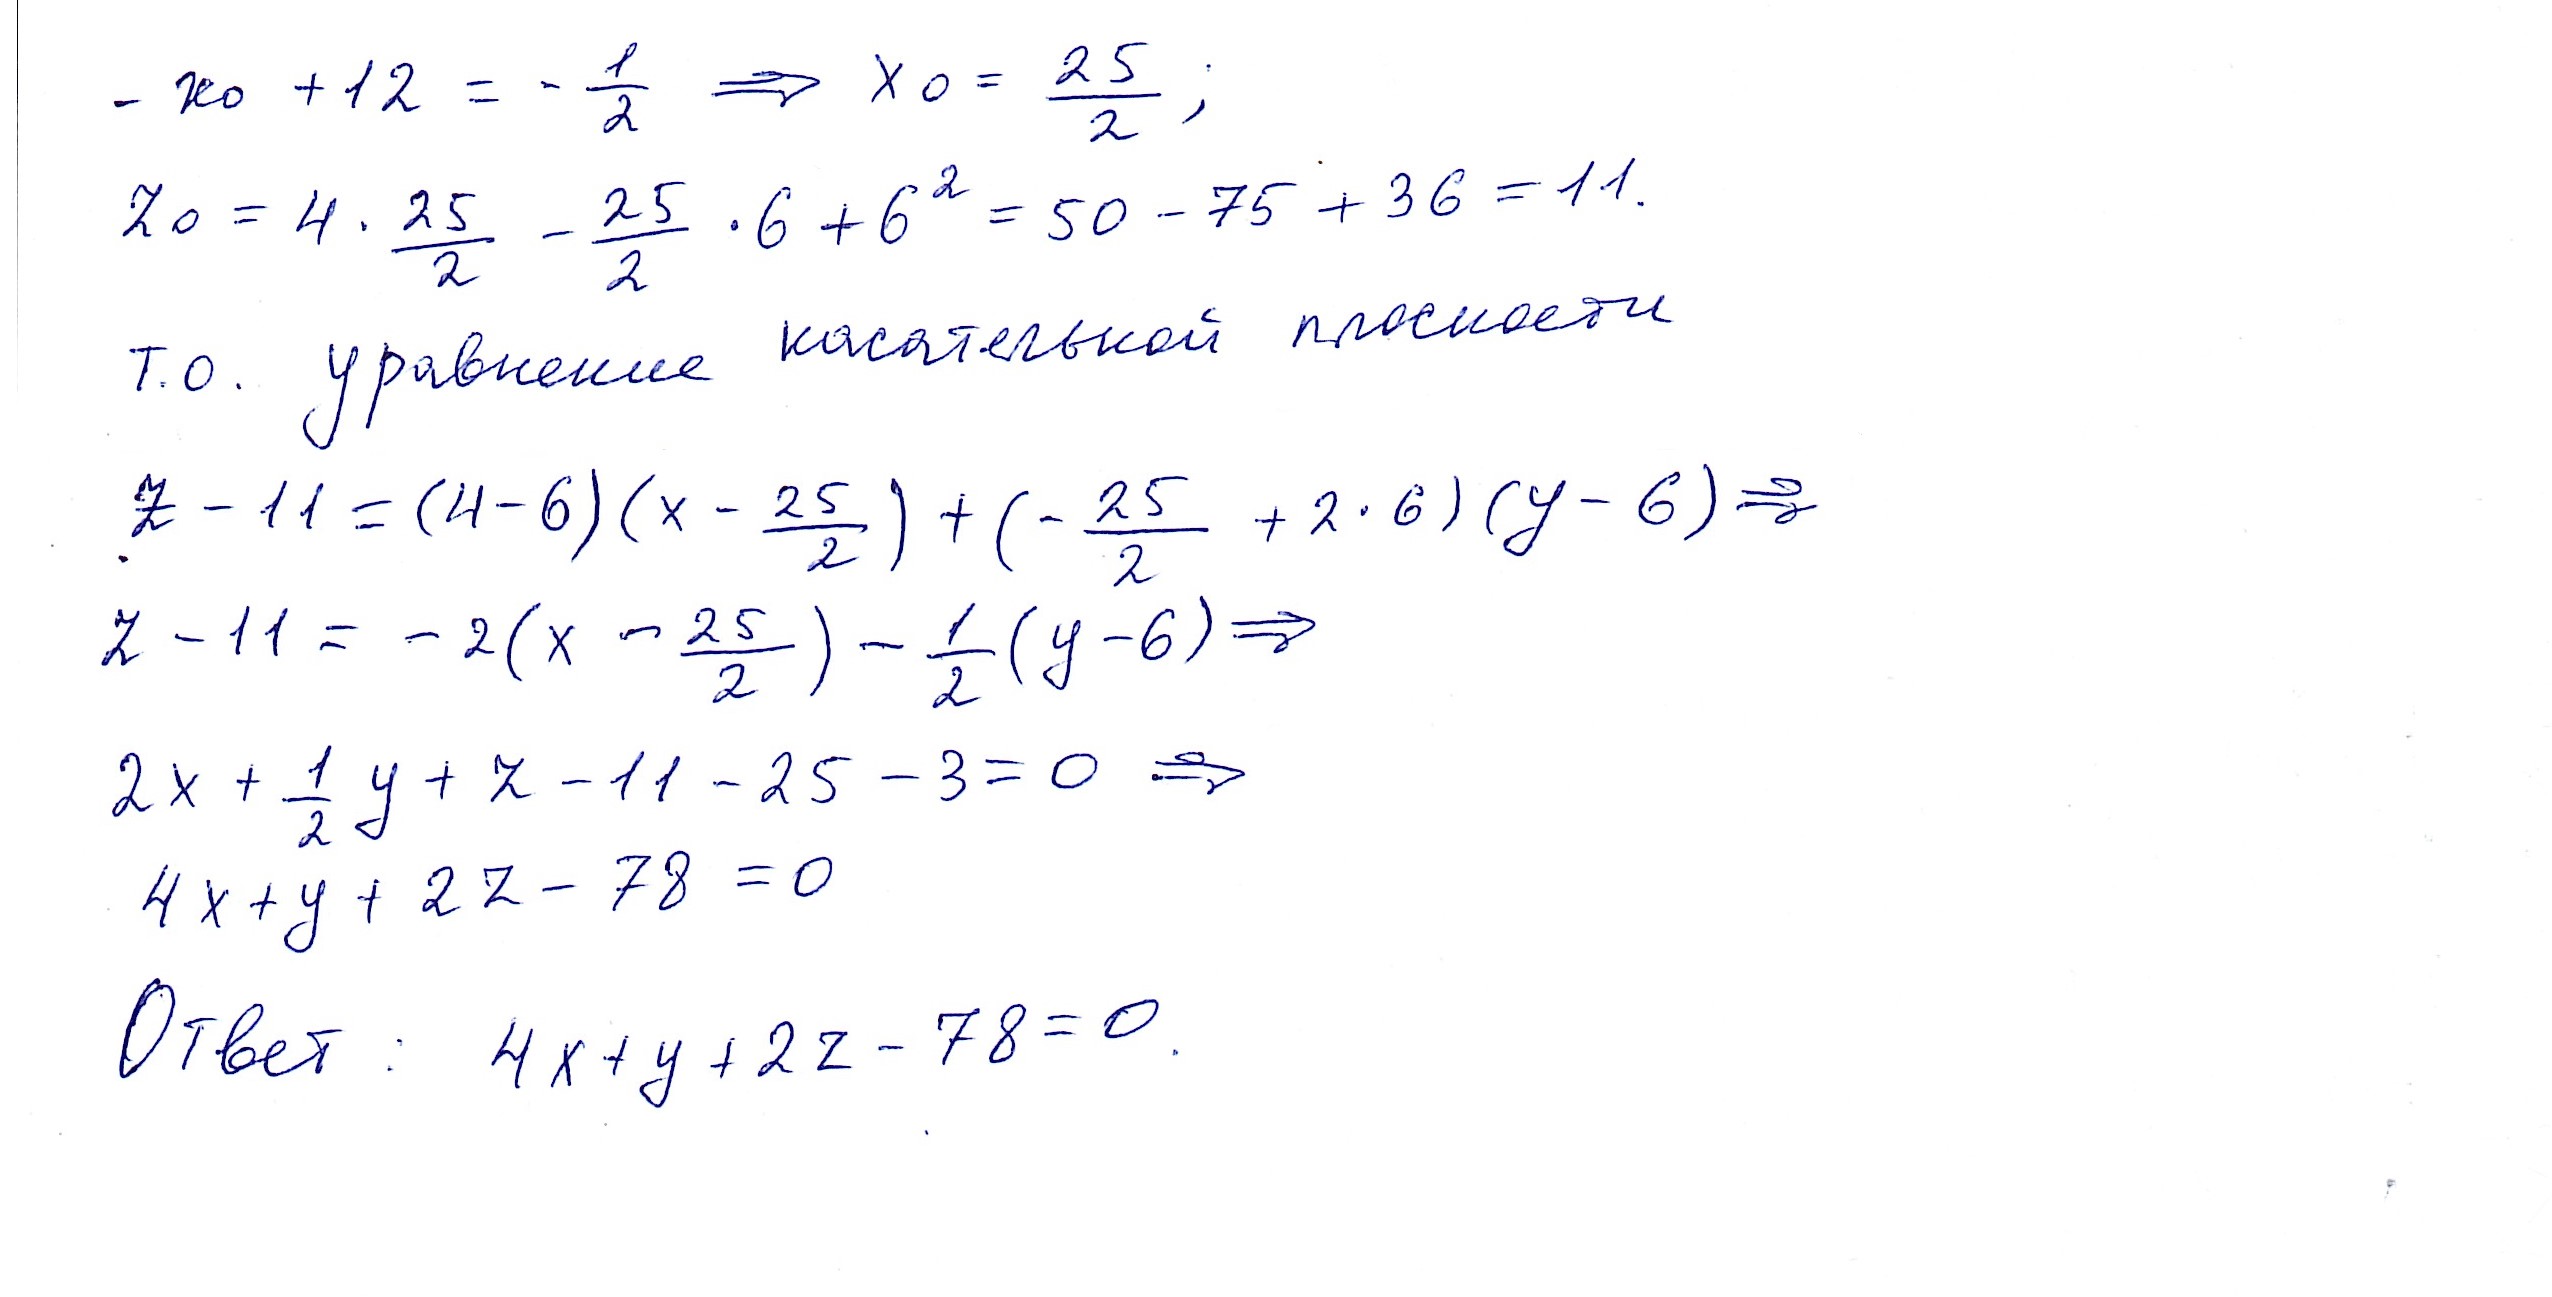 - x₀ + 12 = - 1/2 ⇒ x₀ = 25/2 ;
z₀ = 4 · 25/2 - 25/2 · 6 + 6² = 50 - 75 + 36 = 11.
т.о. уравнение касательной плоскости
z - 11 = (4 - 6)(x - 25/2) + (- 25/2 + 2 · 6)(y - 6) ⇒
z - 11 = - 2(x - 25/2) - 1/2 (y - 6) ⇒
2x + 1/2 y + z - 11 - 25 - 3 = 0 ⇒
4x + y + 2z - 78 = 0
Ответ : 4x + y + 2z - 78 = 0.